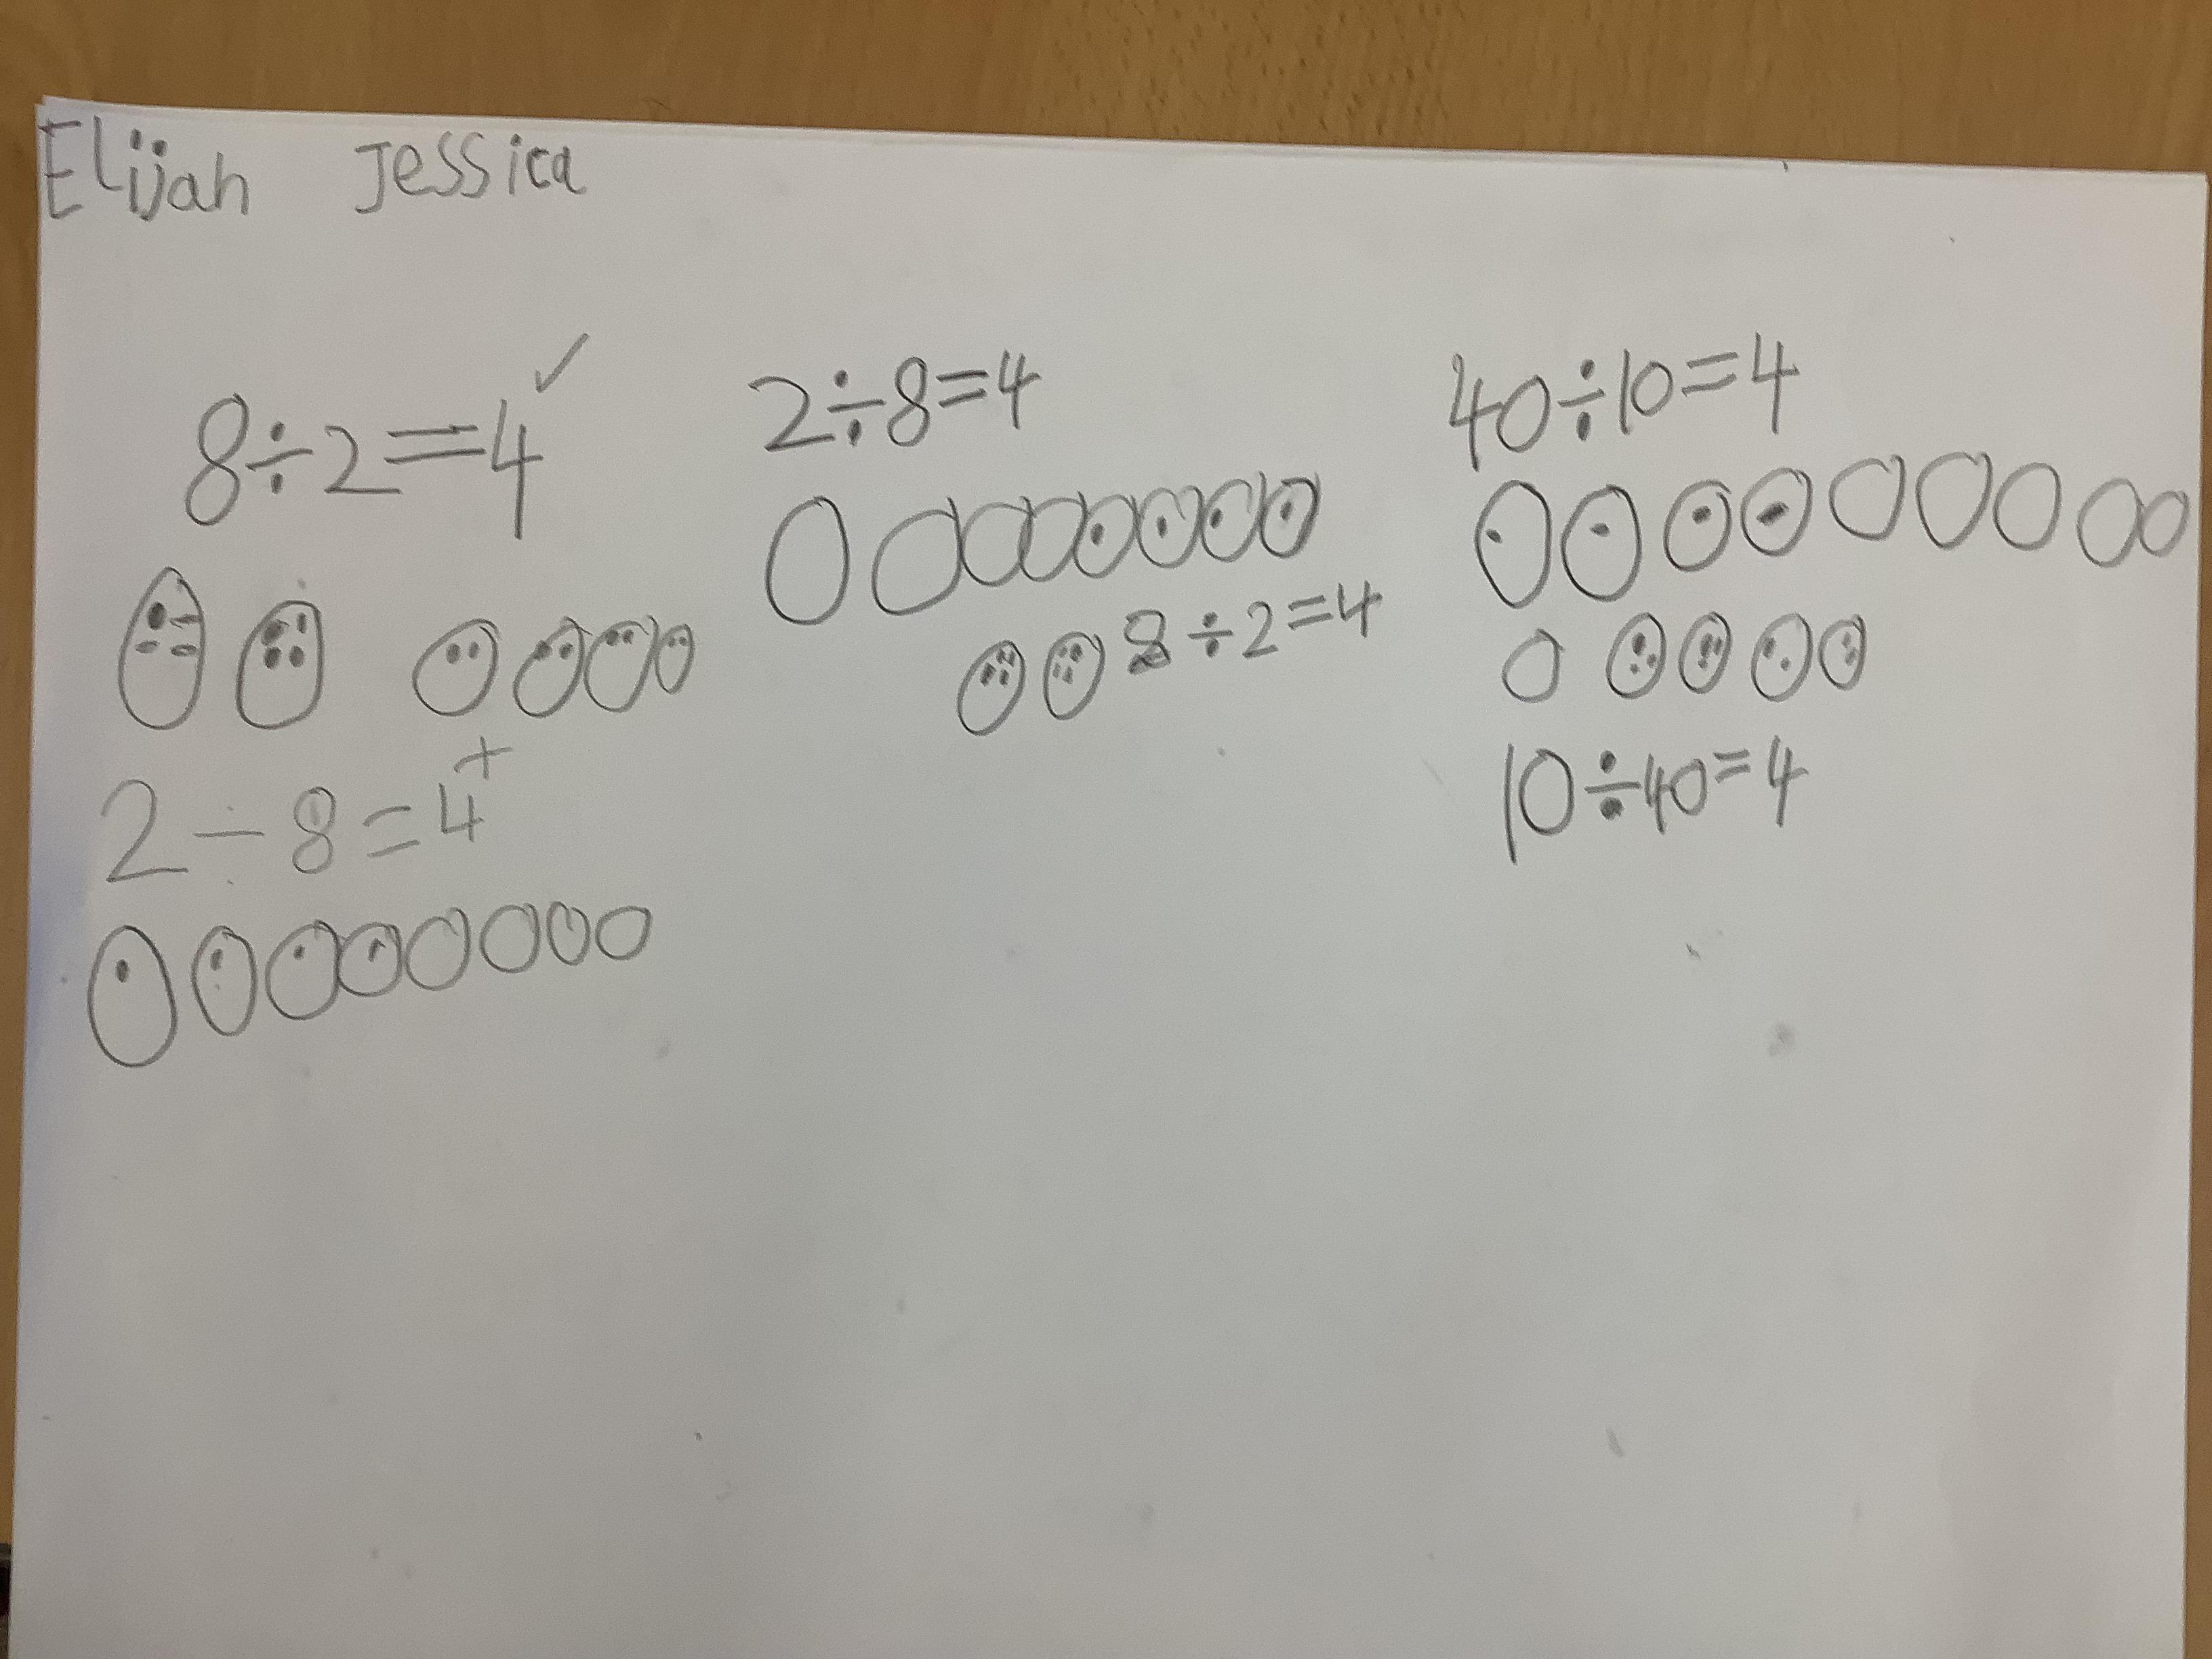 Elijah Jessica
8÷2=4 ✓
2÷8=4
40÷10=4
8÷2=4
2÷8=4 +
10÷40=4